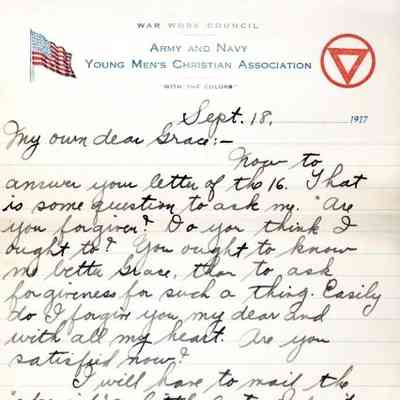 WAR WORK COUNCIL
ARMY AND NAVY
YOUNG MEN'S CHRISTIAN ASSOCIATION
"WITH THE COLORS"
Sept. 18, 1917
My own dear Grace:-
Now to
answer your letter of the 16. That
is some question to ask me. "Are
you forgiven? Do you think I
ought to? You ought to know
me better Grace, than to ask
forgiveness for such a thing. Easily
do I forgive you, my dear and
with all my heart. Are you
satisfied now?
I will have to mail the